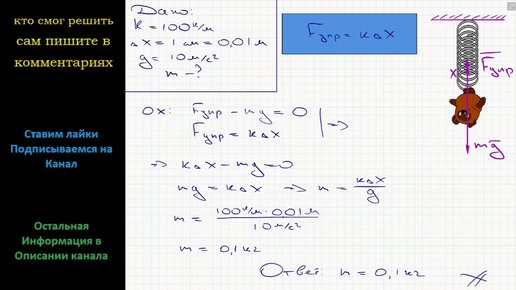 кто смог решить
сам пишите в
комментариях
Ставим лайки
Подписываемся на
Канал
Остальная
Информация в
Описании канала
Дано:
k = 100 н/м
Δx = 1 см = 0,01 м
g = 10 м/с²
m – ?
Fупр = kΔx
Ox: Fупр – mg = 0
Fупр = kΔx | =>
=> kΔx – mg = 0
mg = kΔx => m = kΔx/g
m = 100 н/м · 0,01 м / 10 м/с²
m = 0,1 кг
Ответ: m = 0,1 кг
Fупр
x
mg